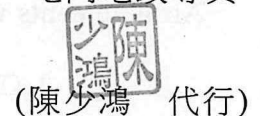 陳少鴻
(陳少鴻 代行)